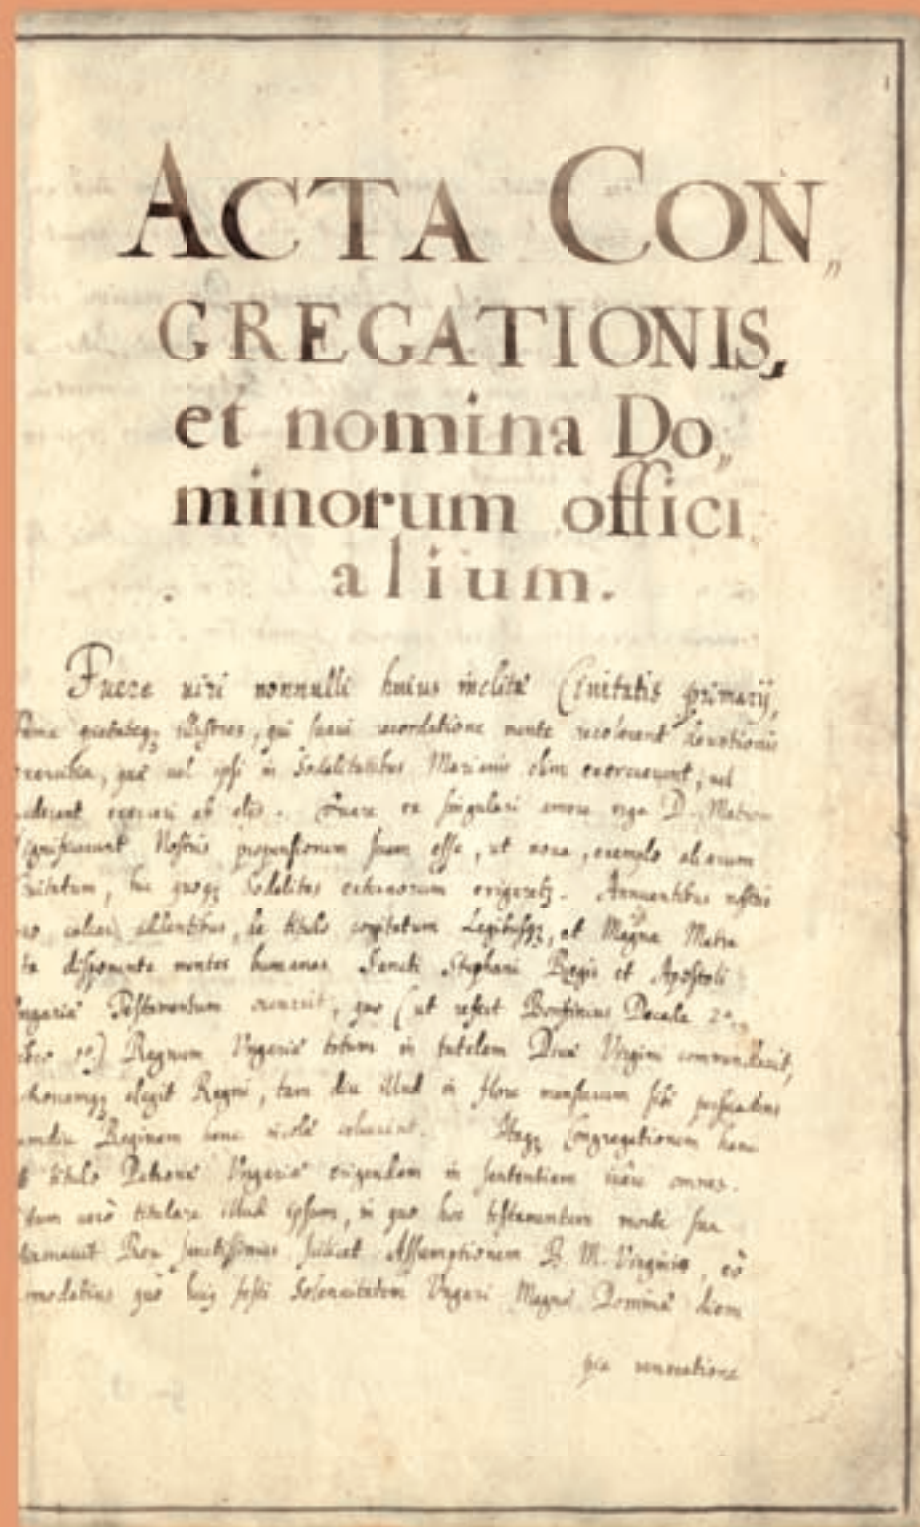 1
ACTA CON„
GREGATIONIS,
et nomina Do„
minorum offici
alium.
Fuere viri nonnulli huius inclitae Civitatis primarij,
pietateq3 illustres, qui suavi recordatione mente recolerent devotionis
quae vel ipsi in Sodalitatibus Marianis olim exercuerunt, vel
exerceri ab alijs. Fuere ex singulari amore erga D. Matrem
significarunt Nostris propensionem suam esse, ut nova, exemplo aliarum
huc quoq3 Sodalitas externorum erigeretur. Annuentibus nostris
addentibus, de titulo cogitatum Legibusq3, et Magna Matre
disponente mentes humanas Sancti Stephani Regis et Apostoli
Testamentum occurrit, quo (ut refert Bonfinius Decade 2a
Regnum Vngariae totum in tutelam Divae Virgini commendavit,
elegit Regni, tam diu illud in flore mansurum sibi persuadens
Reginam hanc incolae colerent. Itaq3 Congregationem hanc
titulo Patronae Vngariae erigendam in sententiam ivere omnes.
vero titulare illud ipsum, in quo hoc testamentum morte sua
Rex sanctissimus scilicet Assumptionem B. M. Virginis, eo
quo huius festi Solennitatem Vngari Magnae Dominae diem
pia veneratione